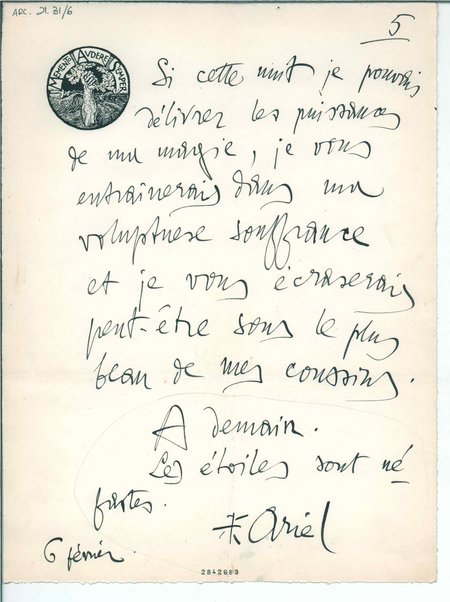 ARC. 21. 31/6
5
MEMENTO AUDERE SEMPER
Si cette nuit je pouvais
délivrer les puissances
de ma magie, je vous
entrainerais dans ma
voluptuese souffrance
et je vous écraserais
peut-être sous le plus
beau de mes coussins.
A demain.
Les étoiles sont né
fastes.
Ariel
6 février
2842683